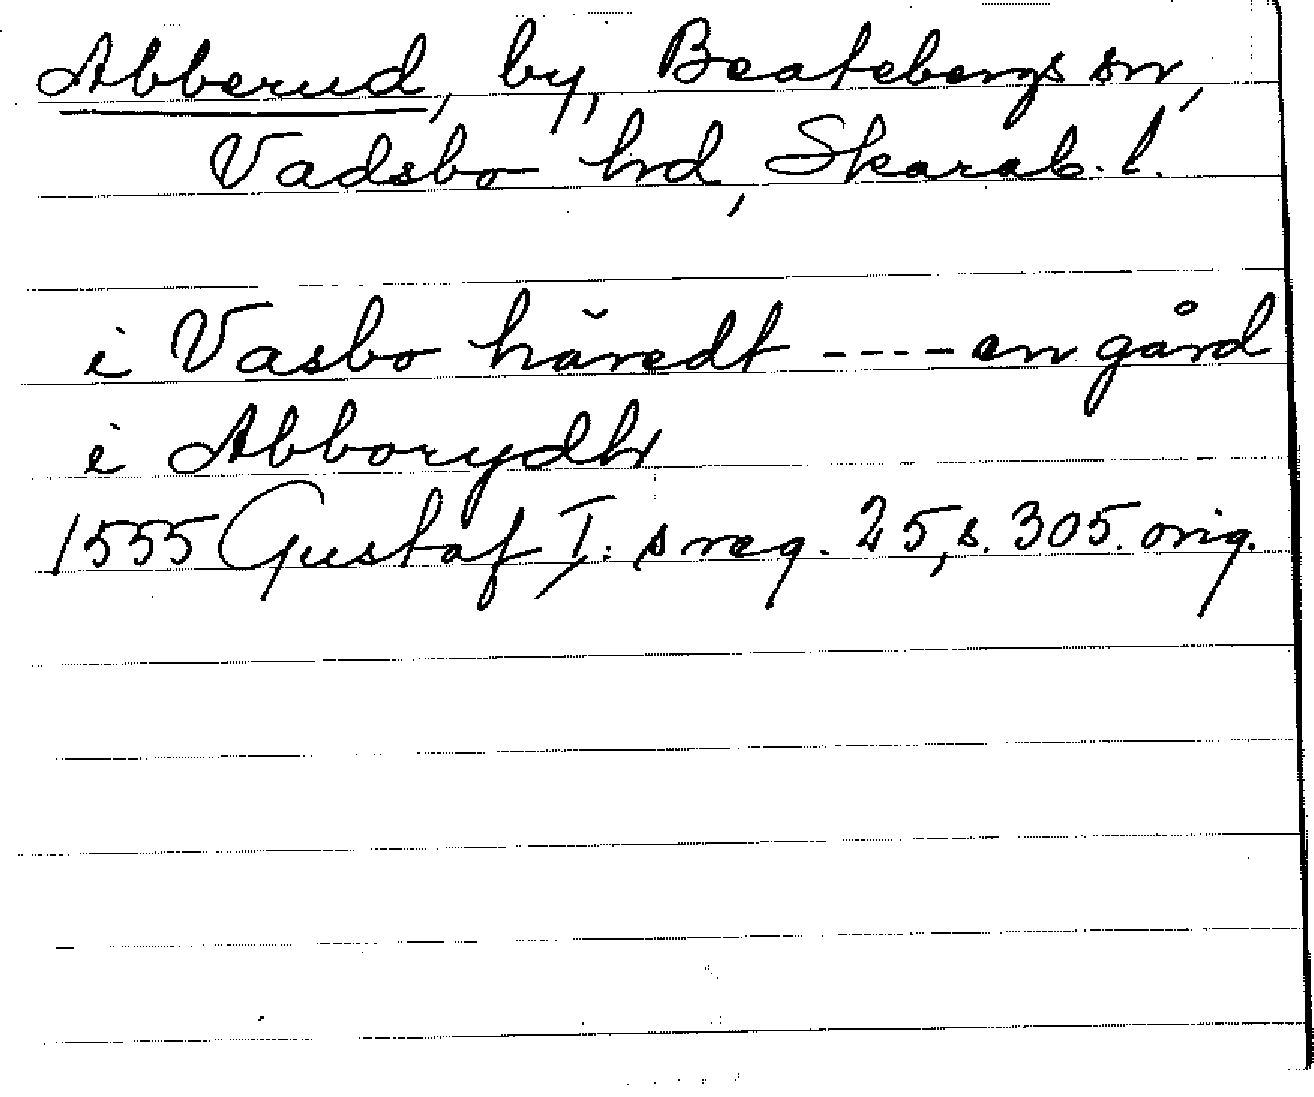 Abberud, by, Beatebergs sn,
Vadsbo hd, Skarab. l.
i Vasbo häredt ---- en gård
i Abborydh
1555 Gustaf I: s reg. 25, s. 305. orig.